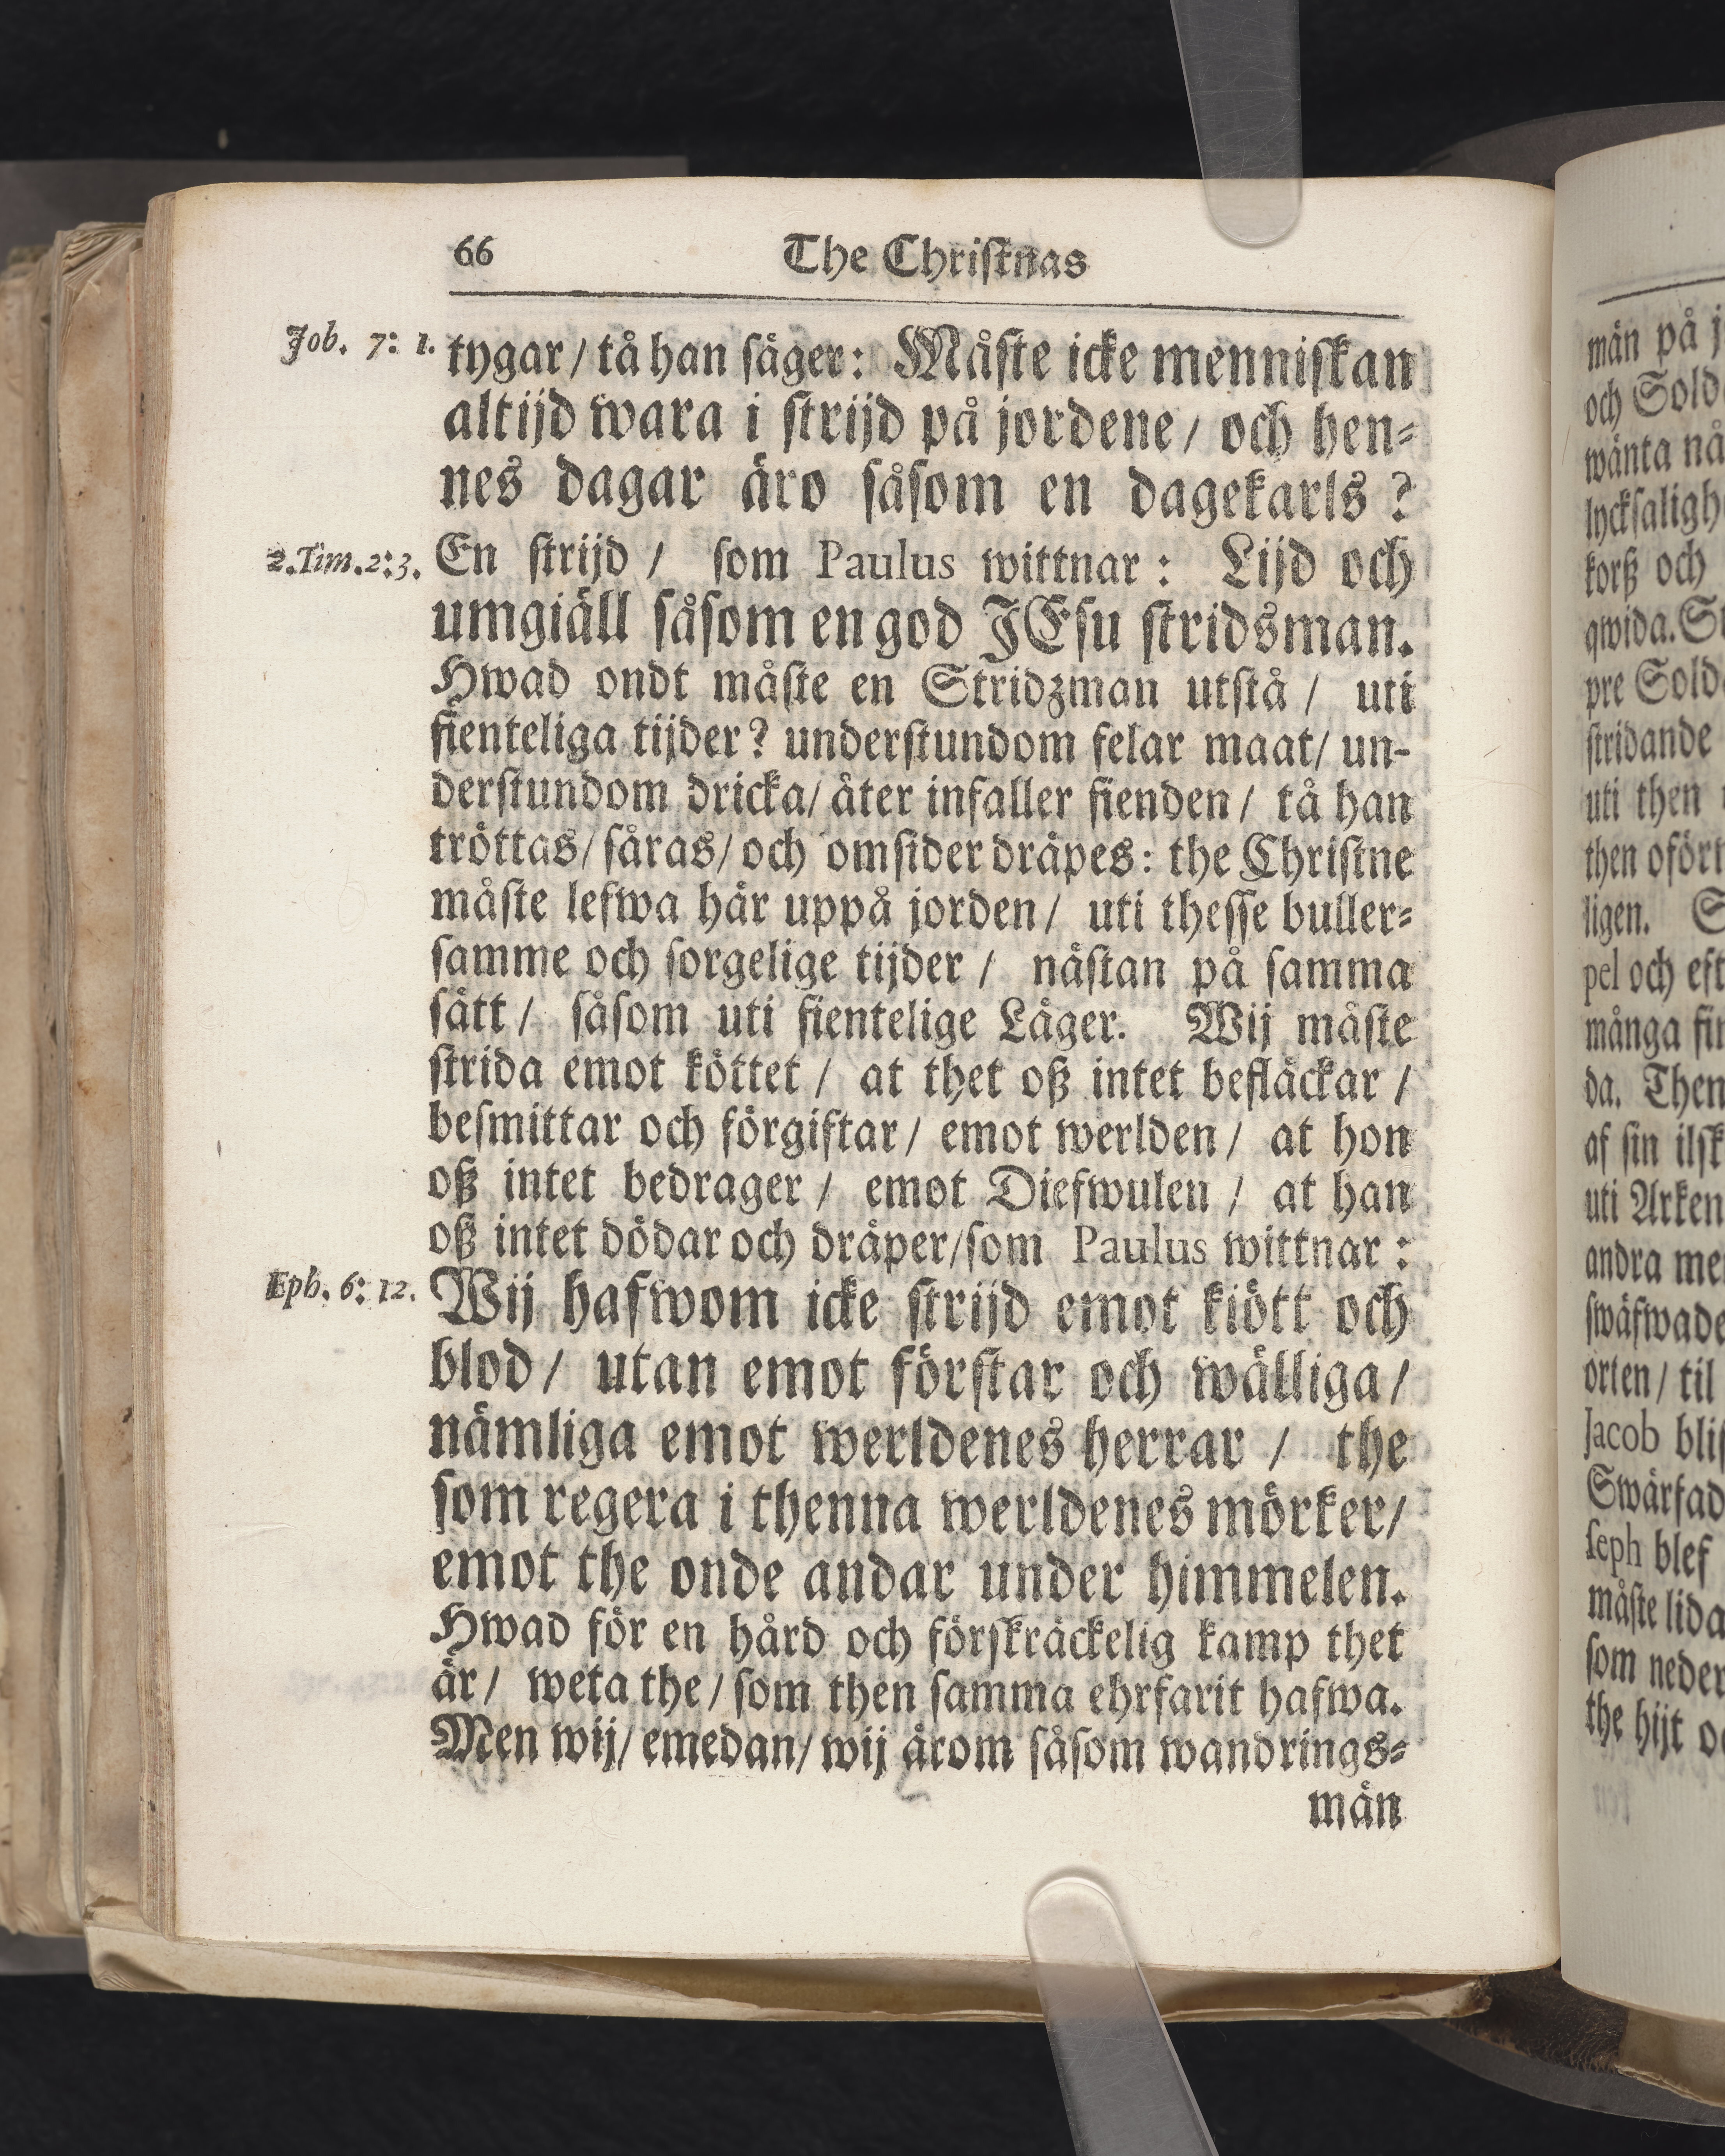 66 The Christnas
Job. 7: 1. tygar/ tå han säger: Måste icke menniskan
altijd wara i strijd på jordene/ och hen-
nes dagar äro såsom en dagekarls?
2. Tim. 2: 3. En strijd / som Paulus wittnar: Lijd och
umgiäll såsom en god JEsu stridsman.
Hwad ondt måste en Stridzman utstå / uti
fienteliga tijder? understundom felar maat/ un-
derstundom dricka/ åter infaller fienden / tå han
tröttas/ såras/ och omsider dräpes: the Christne
måste lefwa här uppå jorden / uti thesse buller-
samme och sorgelige tijder / nästan på samma
sätt / såsom uti fientelige Läger. Wij måste
strida emot köttet / at thet oß intet befläckar /
besmittar och förgiftar / emot werlden / at hon
oß intet bedrager / emot Diefwulen / at han
oß intet dödar och dräper/ som Paulus wittnar:
Eph. 6: 12. Wij hafwom icke strijd emot kiött och
blod / utan emot förstar och wälliga /
nämliga emot werldenes herrar / the
som regera i thenna werldenes mörker/
emot the onde andar under himmelen.
Hwad för en hård och förskräckelig kamp thet
är / weta the / som then samma ehrfarit hafwa.
Men wij/ emedan/ wij ärom såsom wandrings-
män
män på
och
wänta
korß och
qwida.
pre
stridande
uti then
then
ligen.
pel och
många
da. Then
af sin
uti
andra
orten / til
Jacob
seph blef
måste lida
som
the hijt